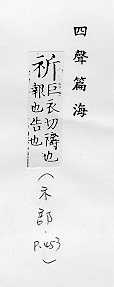 四聲篇海
祈巨衣切禱也
報也告也
(示部.
P.453)